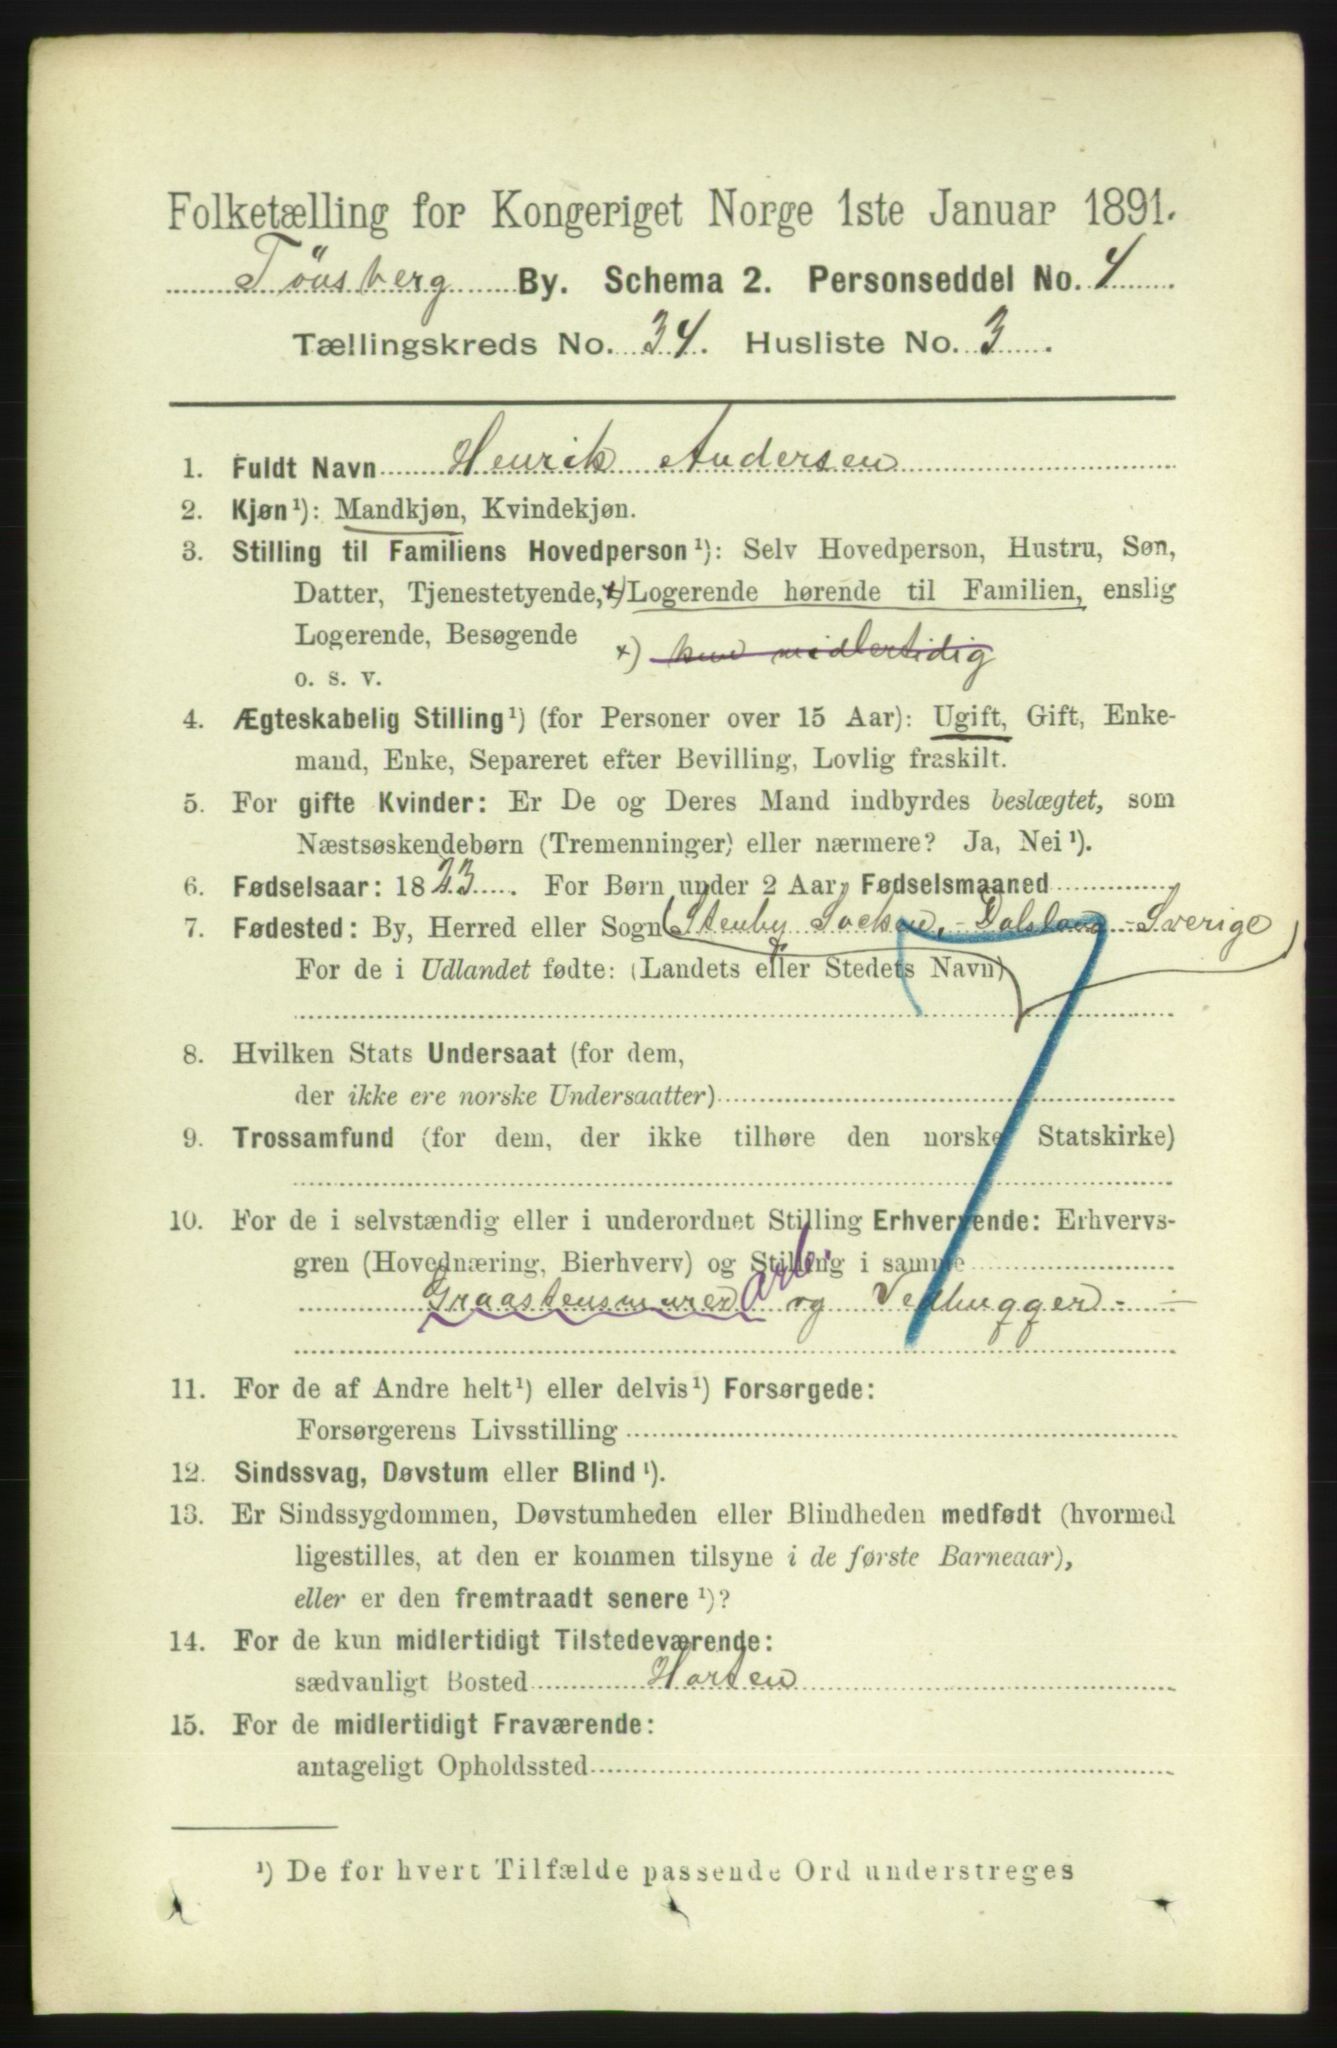 Folketælling for Kongeriget Norge 1ste Januar 1891.
Tönsberg By. Schema 2. Personseddel No. 4.
Tællingskreds No. 34. Husliste No. 3.
1. Fuldt Navn Henrik Andersen
2. Kjøn¹): Mandkjøn, Kvindekjøn.
3. Stilling til Familiens Hovedperson¹): Selv Hovedperson, Hustru, Søn,
Datter, Tjenestetyende, x) Logerende hørende til Familien, enslig
Logerende, Besøgende x) kun midlertidig
o. s. v.
4. Ægteskabelig Stilling¹) (for Personer over 15 Aar): Ugift, Gift, Enke-
mand, Enke, Separeret efter Bevilling, Lovlig fraskilt.
5. For gifte Kvinder: Er De og Deres Mand indbyrdes beslægtet, som
Næstsøskendebørn (Tremenninger) eller nærmere? Ja, Nei¹).
6. Fødselsaar: 1823. For Børn under 2 Aar, Fødselsmaaned
7. Fødested: By, Herred eller Sogn (Stenby Socken, - Dalsland - Sverige)
For de i Udlandet fødte: (Landets eller Stedets Navn)
8. Hvilken Stats Undersaat (for dem,
der ikke ere norske Undersaatter)
9. Trossamfund (for dem, der ikke tilhøre den norske Statskirke)
10. For de i selvstændig eller i underordnet Stilling Erhvervende: Erhvervs-
gren (Hovednæring, Bierhverv) og Stilling i samme
Graastensmurer arb. og Vedhugger -
11. For de af Andre helt¹) eller delvis¹) Forsørgede:
Forsørgerens Livsstilling
12. Sindssvag, Døvstum eller Blind¹).
13. Er Sindssygdommen, Døvstumheden eller Blindheden medfødt (hvormed
ligestilles, at den er kommen tilsyne i de første Barneaar),
eller er den fremtraadt senere¹)?
14. For de kun midlertidigt Tilstedeværende:
sædvanligt Bosted Horten
15. For de midlertidigt Fraværende:
antageligt Opholdssted
¹) De for hvert Tilfælde passende Ord understreges